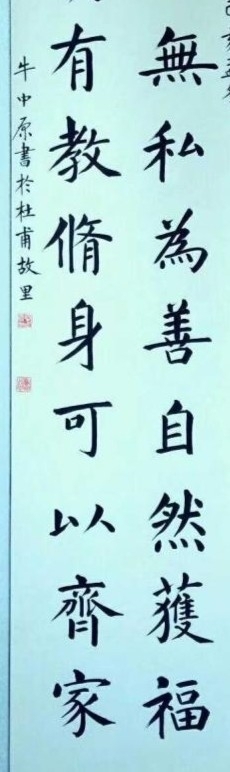 無私為善自然獲福
有教脩身可以齊家
牛中原書於杜甫故里